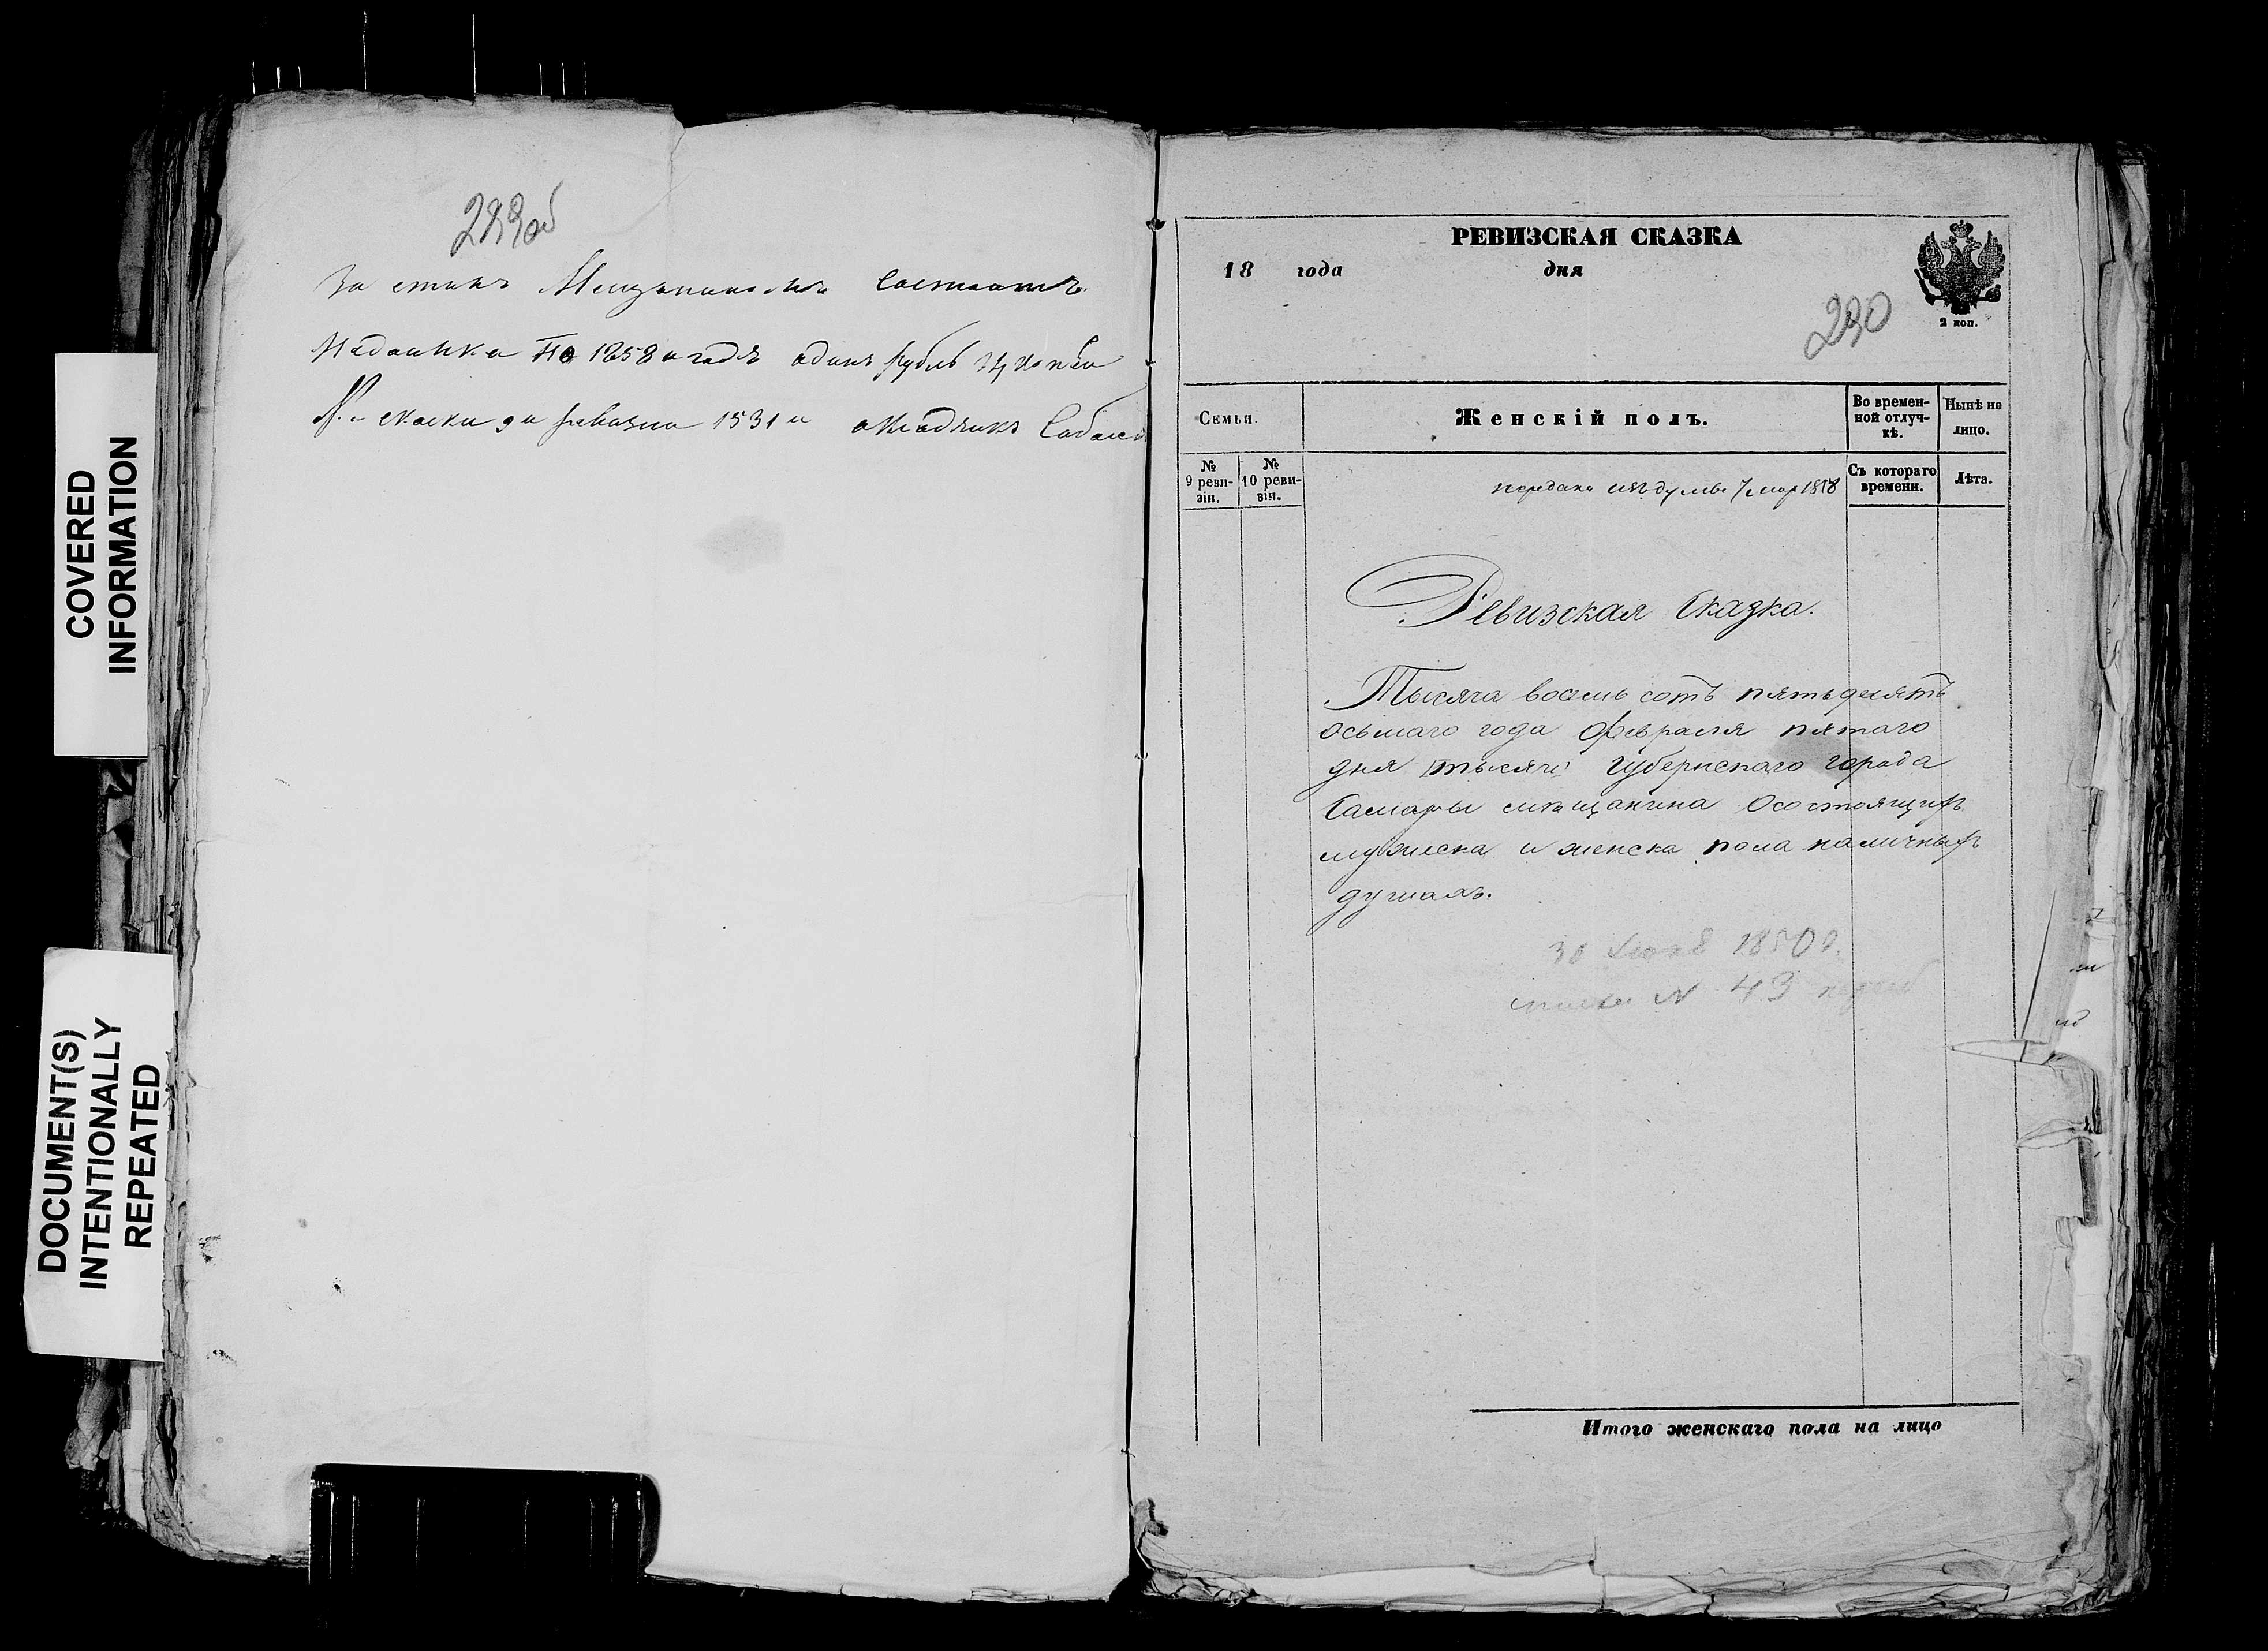 COVERED
INFORMATION
DOCUMENT(S)
INTENTIONALLY
REPEATED
За симъ Мещаниномъ Состоитъ
Недоимки По 1858 и годъ одинъ рубль копѣи
№ скаски 9 и ревизии 1531 и
РЕВИЗСКАЯ СКАЗКА
18 года дня
230
2 коп.
Семья.
Женскій полъ.
Во времен-
ной отлуч-
кѣ.
Нынѣ на
лицо.
№
9 реви-
зіи.
№
10 реви-
зіи.
передана изъ думы 7 мар 1858
Съ котораго
времени.
Лѣта.
Ревизская Сказка.
Тысяча восемь сотъ пятьдесятъ
осьмаго года Февраля пятаго
дня губернскаго города
Самары мѣщанина Осостоящихъ
мужеска и женска пола наличныхъ
душахъ.
30 1850 г.
N 43
Итого женскаго пола на лицо